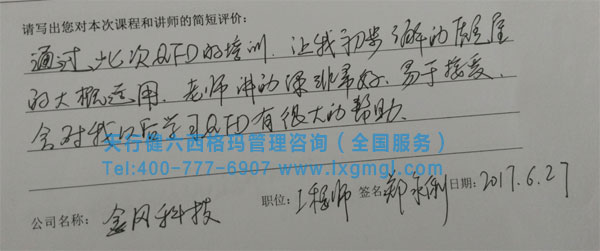 请写出您对本次课程和讲师的简短评价：
通过此次QFD的培训，让我初步了解的质量屋
的大概运用，老师讲的课非常好，易于接受，
会对我以后学习QFD有很大的帮助。
天行健六西格玛管理咨询（全国服务）
Tel:400-777-6907 www.lxgmgl.com
公司名称： 金风科技 职位： 工程师 签名 郑永刚 日期： 2017.6.27